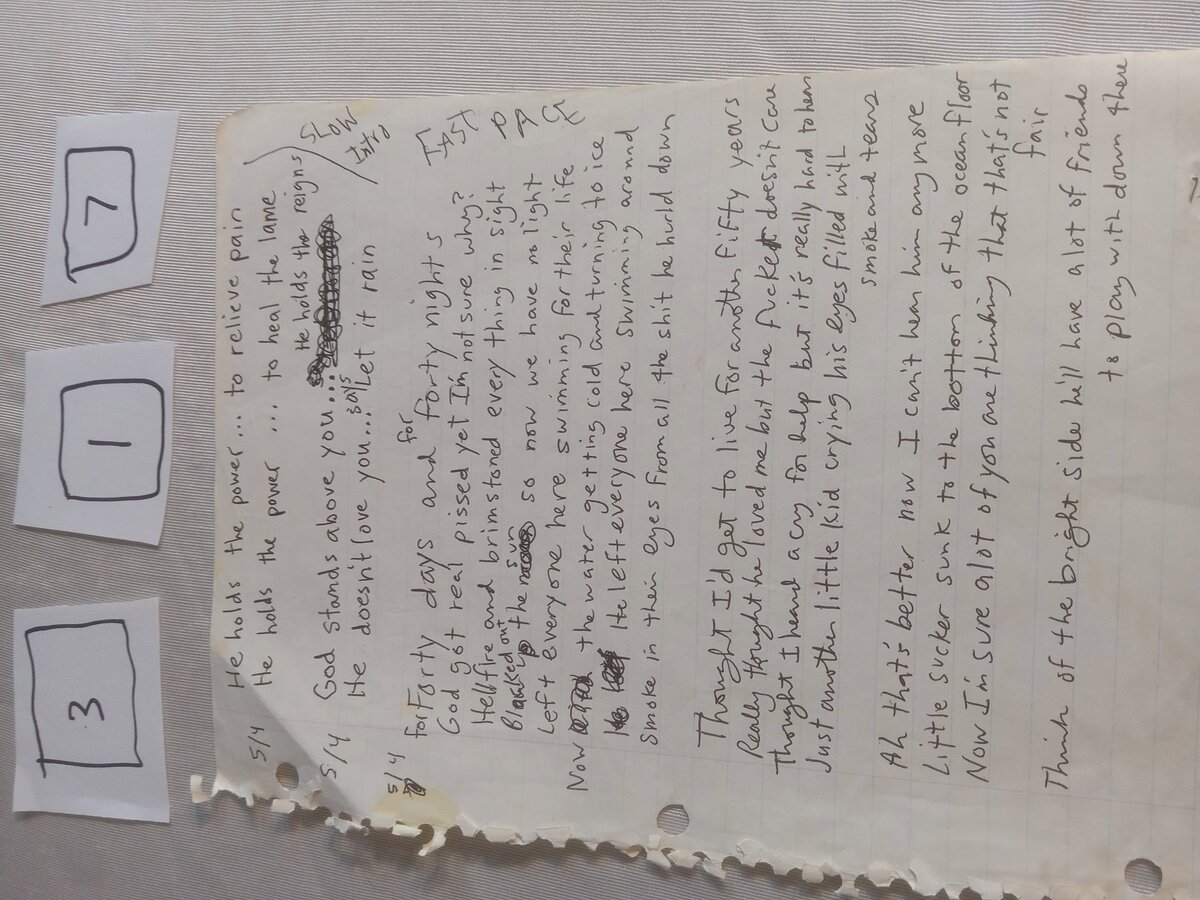 3
1
7
5/4 He holds the power... to relieve pain
He holds the power ... to heal the lame
He holds the reigns
SLOW
5/4 God stands above you...
He doesn't love you... says Let it rain
5/4
for Forty days and for forty nights
God got real pissed yet I'm not sure why?
Hellfire and brimstoned every thing in sight
Blacked out the sun so now we have no light
Left everyone here swimming for their life
Now the water getting cold and turning to ice
He left everyone here swimming around
Smoke in their eyes from all the shit he hurld down
Thought I'd get to live for another fifty years
Really thought he loved me but the fucker doesn't care
Thought I heard a cry for help but it's really hard to hear
Just another little kid crying his eyes filled with
smoke and tears
Ah that's better now I can't hear him any more
Little sucker sunk to the bottom of the ocean floor
Now I'm sure alot of you are thinking that that's not
fair
Think of the bright side he'll have alot of friends
to play with down there